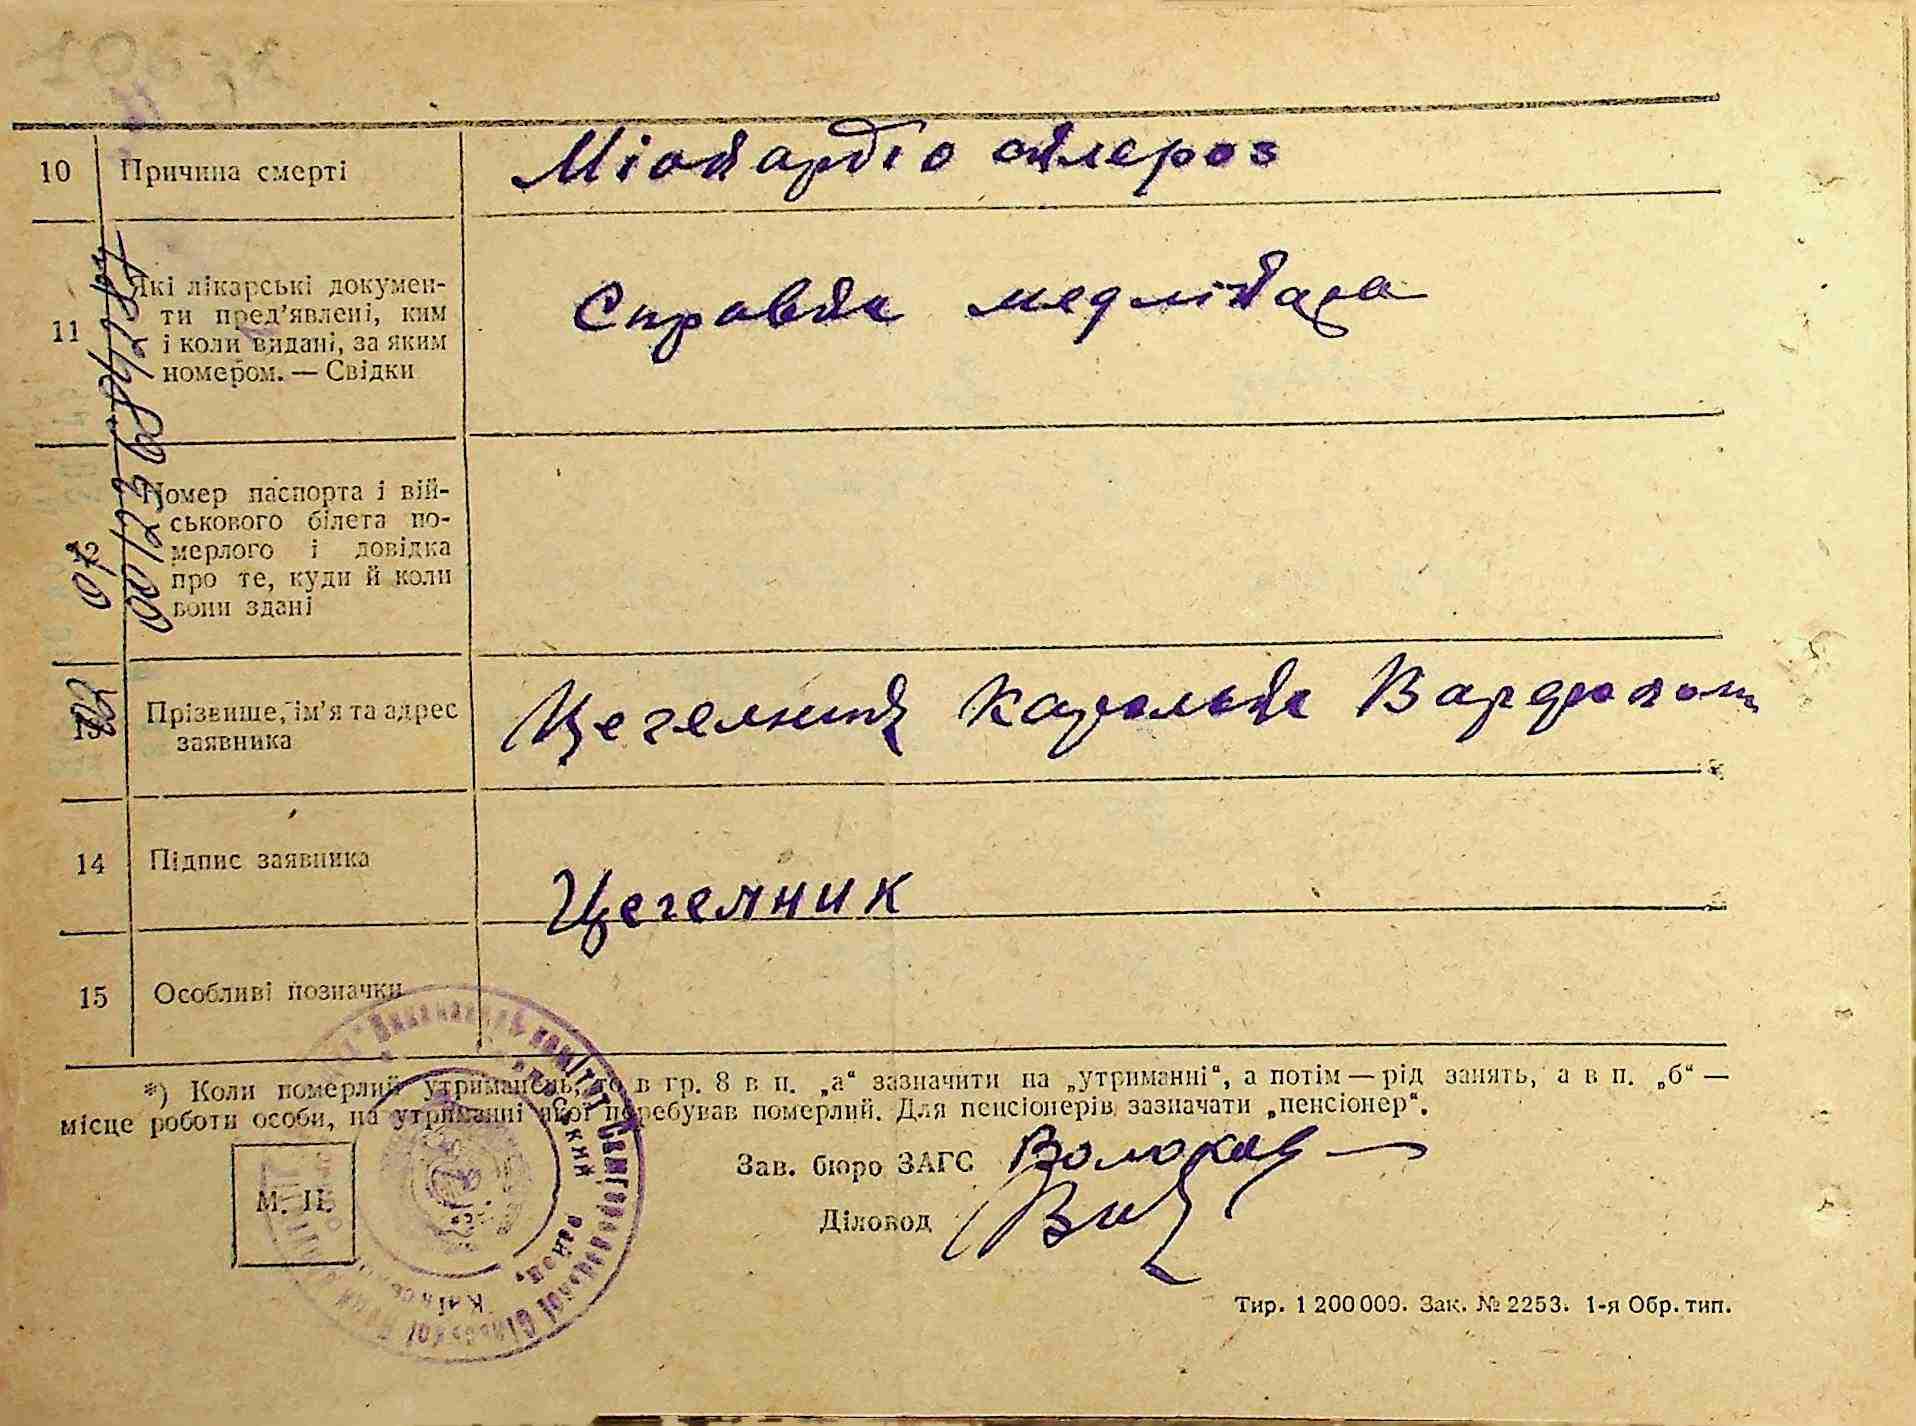 10 Причина смерті Міокардіо склероз
11 Які лікарські докумен-
ти пред'явлені, ким
і коли видані, за яким
номером. — Свідки
Справка медлікара
12 Номер паспорта і вій-
ськового білета по-
мерлого і довідка
про те, куди й коли
вони здані
13 Прізвище, ім'я та адрес
заявника
Цегельник Каролька
14 Підпис заявника
Цегелник
15 Особливі позначки
*) Коли померлий утриманець, то в гр. 8 в п. „а“ зазначити на „утриманні“, а потім — рід занять, а в п. „б“ —
місце роботи особи, на утриманні якої перебував померлий. Для пенсіонерів зазначати „пенсіонер“.
Зав. бюро ЗАГС
М. П.
Діловод
Тир. 1 200 000. Зак. № 2253. 1-я Обр. тип.